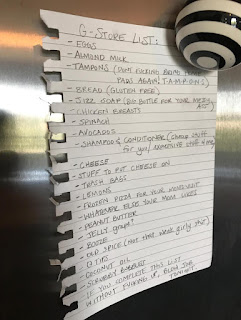 G-STORE LIST:
- EGGS
- ALMOND MILK
- TAMPONS (DON'T FUCKING BRING HOME
PADS AGAIN! T-A-M-P-O-N-S)
- BREAD (GLUTEN FREE)
- JIZZ SOAP (BIG BOTTLE FOR YOUR
- CHICKEN BREASTS
- SPINACH
- AVOCADOS
- SHAMPOO & CONDITIONER (cheap stuff
for you/ stuff 4 me)
- CHEESE
- STUFF TO PUT CHEESE ON
- TRASH BAGS
- LEMONS
- FROZEN PIZZA FOR YOUR MOM'S VISIT
- WHATEVER ELSE YOUR MOM LIKES
- PEANUT BUTTER
- JELLY grape?
- BOOZE
- OLD SPICE (not that weak girly shit)
- Q TIPS
- COCONUT OIL
- SCRUBBY
- IF YOU COMPLETE THIS LIST
WITHOUT FUCKING UP, BLOW JOB
TONIGHT